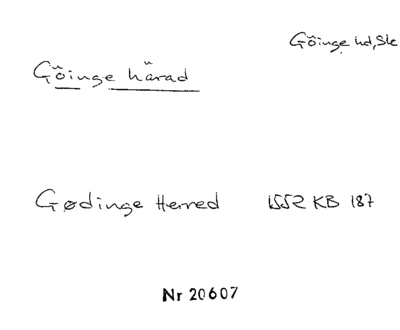 Göinge hd, Sk
Göinge härad
Gødinge Herred 1552 KB 187
Nr 20607